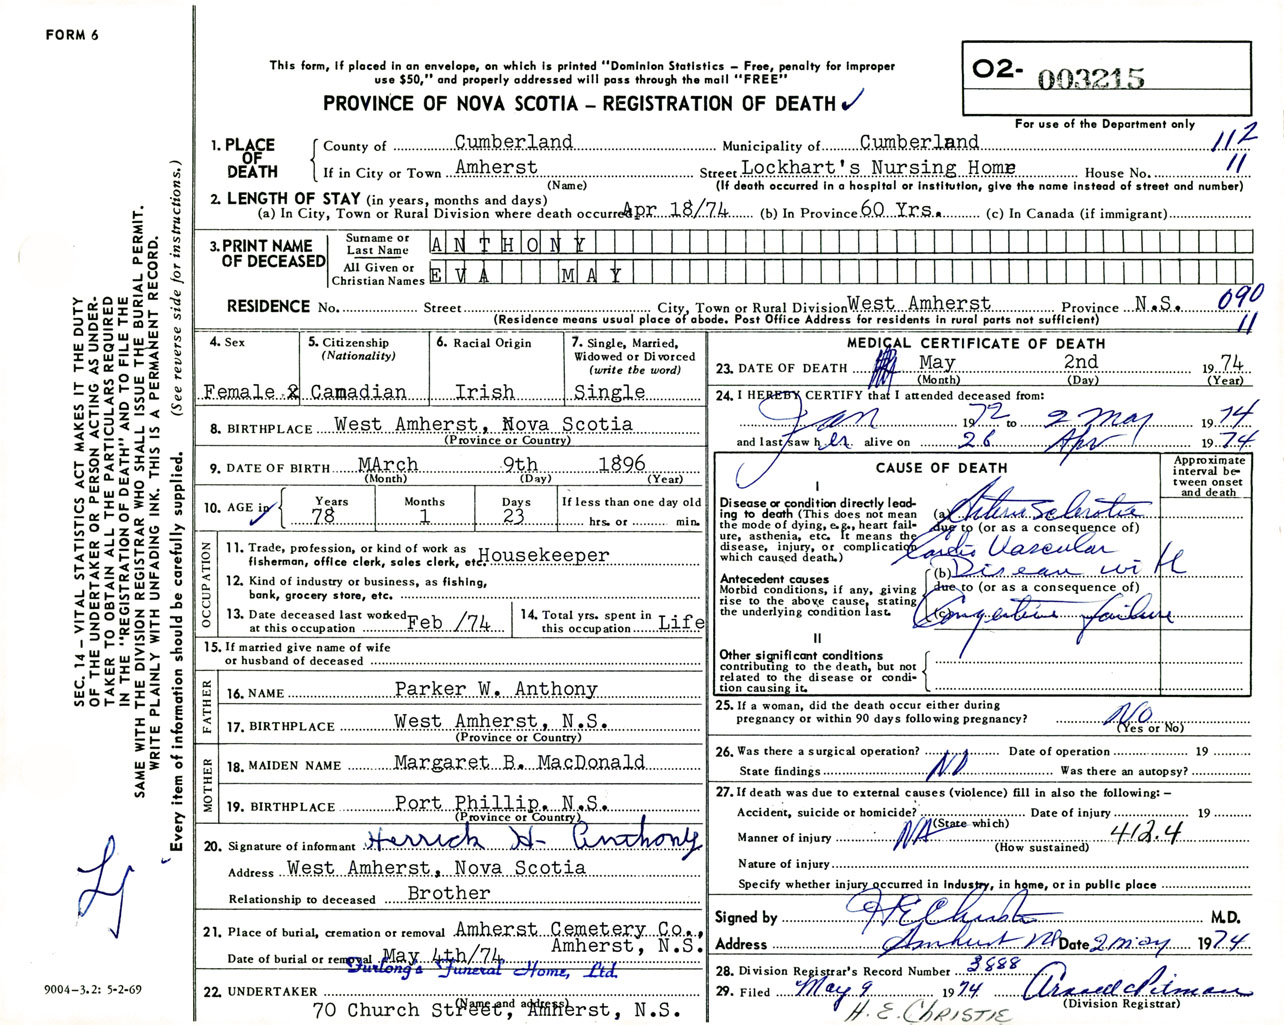 FORM 6
This form, if placed in an envelope, on which is printed "Dominion Statistics – Free, penalty for improper
use $50," and properly addressed will pass through the mail "FREE"
PROVINCE OF NOVA SCOTIA – REGISTRATION OF DEATH ✓
O2- 003215
For use of the Department only
1. PLACE OF DEATH
County of Cumberland Municipality of Cumberland 112
If in City or Town Amherst Street Lockhart's Nursing Home House No. 11
(Name) (If death occurred in a hospital or institution, give the name instead of street and number)
2. LENGTH OF STAY (in years, months and days)
(a) In City, Town or Rural Division where death occurred Apr 18/74 (b) In Province 60 Yrs. (c) In Canada (if immigrant)
3. PRINT NAME OF DECEASED
Surname or Last Name ANTHONY
All Given or Christian Names EVA MAY
RESIDENCE No. Street City, Town or Rural Division West Amherst Province N.S. 090
(Residence means usual place of abode. Post Office Address for residents in rural parts not sufficient) 11
4. Sex
Female x
5. Citizenship
(Nationality)
Canadian
6. Racial Origin
Irish
7. Single, Married,
Widowed or Divorced
(write the word)
Single
8. BIRTHPLACE West Amherst, Nova Scotia
(Province or Country)
9. DATE OF BIRTH MArch 9th 1896
(Month) (Day) (Year)
10. AGE in ✓ Years Months Days If less than one day old
78 1 23 hrs. or min.
OCCUPATION
11. Trade, profession, or kind of work as
fisherman, office clerk, sales clerk, etc. Housekeeper
12. Kind of industry or business, as fishing,
bank, grocery store, etc.
13. Date deceased last worked
at this occupation Feb /74
14. Total yrs. spent in
this occupation Life
15. If married give name of wife
or husband of deceased
FATHER
16. NAME Parker W. Anthony
17. BIRTHPLACE West Amherst, N.S.
(Province or Country)
MOTHER
18. MAIDEN NAME Margaret B. MacDonald
19. BIRTHPLACE Port Phillip, N.S.
(Province or Country)
20. Signature of informant Herrick H. Anthony
Address West Amherst, Nova Scotia
Relationship to deceased Brother
21. Place of burial, cremation or removal Amherst Cemetery Co.,
Amherst, N.S.
Date of burial or removal May 4th/74
Furlong's Funeral Home, Ltd.
22. UNDERTAKER
(Name and address)
70 Church Street, Amherst, N.S.
MEDICAL CERTIFICATE OF DEATH
23. DATE OF DEATH May 2nd 1974
(Month) (Day) (Year)
24. I HEREBY CERTIFY that I attended deceased from:
Jan 1972 to 2 May 1974
and last saw her alive on 26 Apr 1974
CAUSE OF DEATH
Approximate
interval be-
tween onset
and death
I
Disease or condition directly lead-
ing to death (This does not mean
the mode of dying, e.g., heart fail-
ure, asthenia, etc. It means the
disease, injury, or complication
which caused death.)
(a) Arteriosclerotic
due to (or as a consequence of)
Cardio Vascular
Antecedent causes
Morbid conditions, if any, giving
rise to the above cause, stating
the underlying condition last.
(b) Disease with
due to (or as a consequence of)
(c) Congestive failure
II
Other significant conditions
contributing to the death, but not
related to the disease or condi-
tion causing it.
25. If a woman, did the death occur either during
pregnancy or within 90 days following pregnancy? NO
(Yes or No)
26. Was there a surgical operation? Date of operation 19
State findings NO Was there an autopsy?
27. If death was due to external causes (violence) fill in also the following: –
Accident, suicide or homicide? Date of injury 19
(State which)
Manner of injury NA 412.4
(How sustained)
Nature of injury
Specify whether injury occurred in Industry, in home, or in public place
Signed by H E Christie M.D.
Address Amherst NS Date 2 May 1974
28. Division Registrar's Record Number 3888
29. Filed May 9 1974 Pitman
(Division Registrar)
H. E. CHRISTIE
SEC. 14 – VITAL STATISTICS ACT MAKES IT THE DUTY
OF THE UNDERTAKER OR PERSON ACTING AS UNDER-
TAKER TO OBTAIN ALL THE PARTICULARS REQUIRED
IN THE "REGISTRATION OF DEATH" AND TO FILE THE
SAME WITH THE DIVISION REGISTRAR WHO SHALL ISSUE THE BURIAL PERMIT.
WRITE PLAINLY WITH UNFADING INK. THIS IS A PERMANENT RECORD.
Every item of information should be carefully supplied. (See reverse side for instructions.)
9004–3.2: 5-2-69